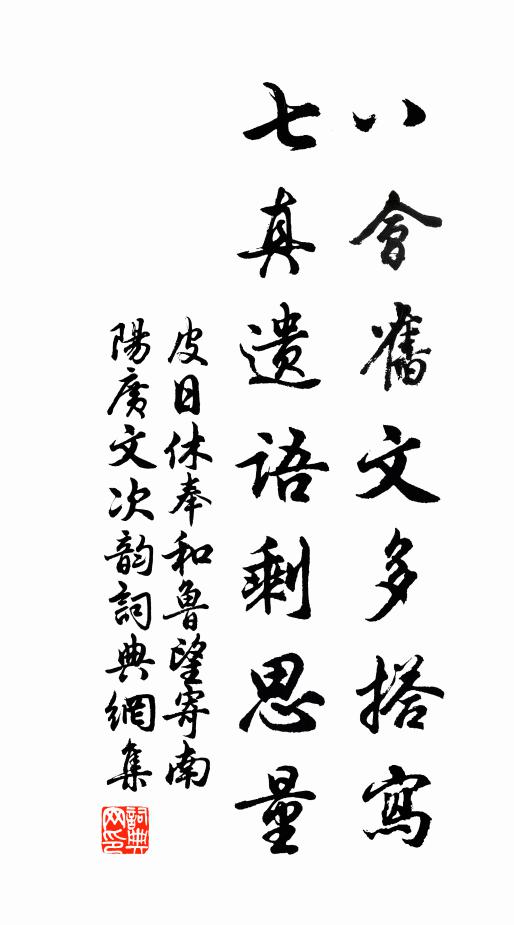 八會舊文多搭寫
七真遺語剩思量
皮日休奉和魯望寄南
陽廣文次韵詞典網集
詞典網印